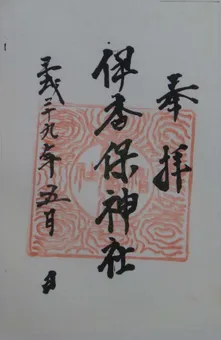 奉拝
伊香保神社
平成二十九年五月
日